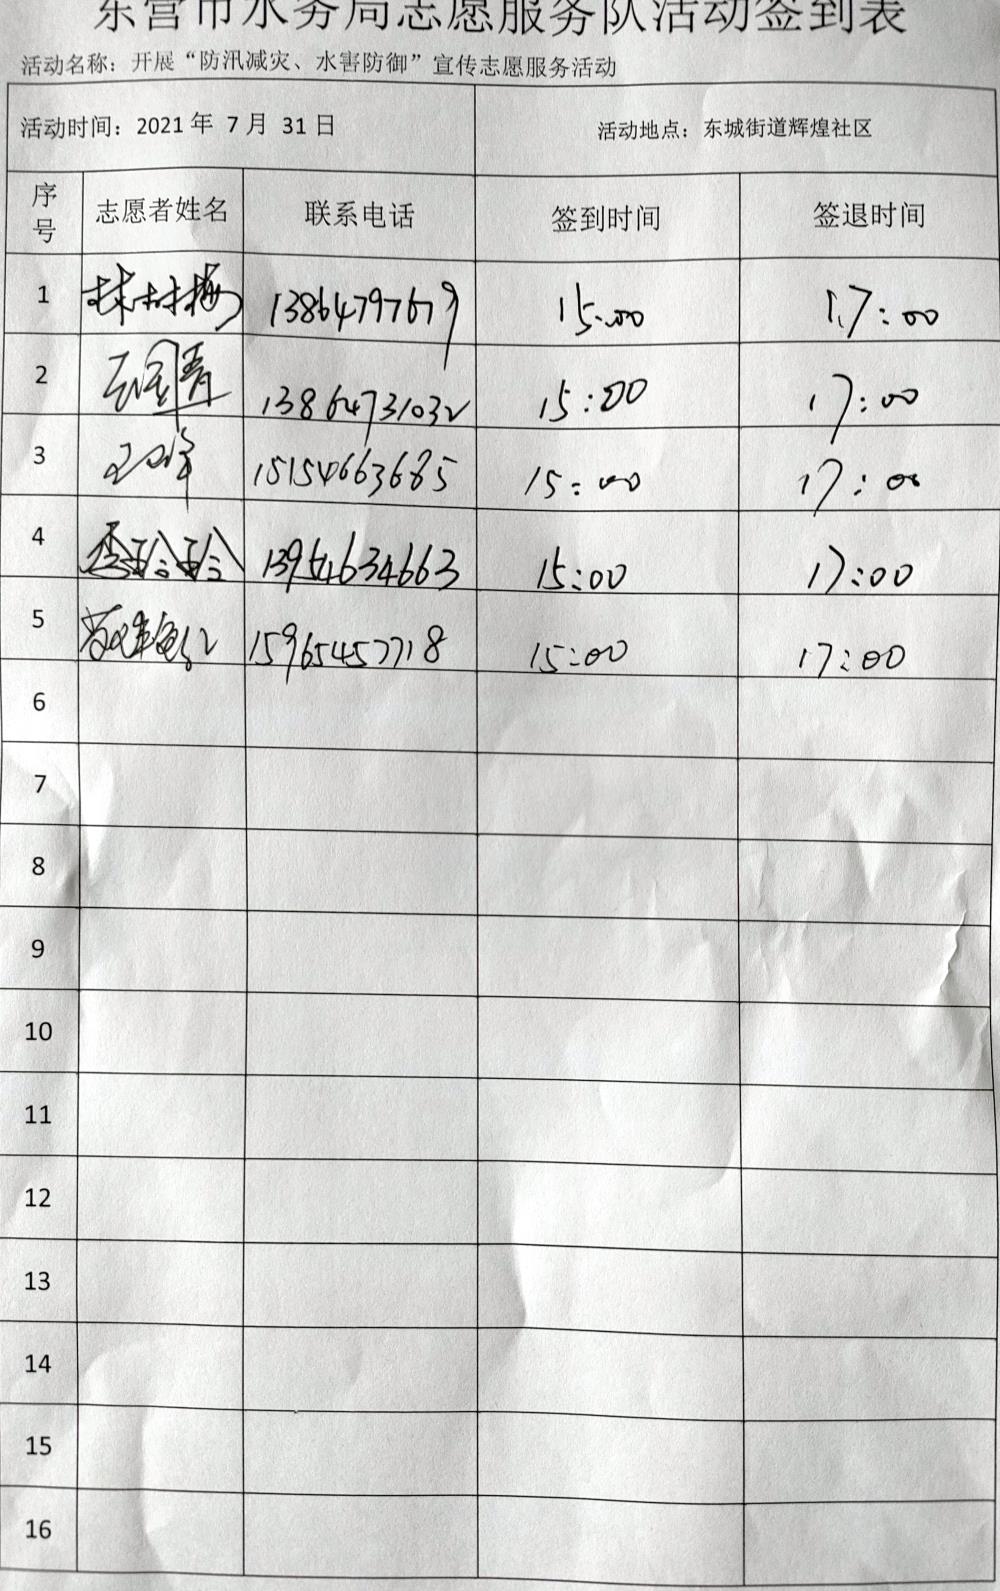 东营市水务局志愿服务队活动签到表
活动名称：开展“防汛减灾、水害防御”宣传志愿服务活动
活动时间：2021年 7月 31日 活动地点：东城街道辉煌社区
序号 志愿者姓名 联系电话 签到时间 签退时间
1 13864797679 15:00 17:00
2 13864731032 15:00 17:00
3 15154663685 15:00 17:00
4 李玲玲 13954634663 15:00 17:00
5 15965457718 15:00 17:00
6
7
8
9
10
11
12
13
14
15
16